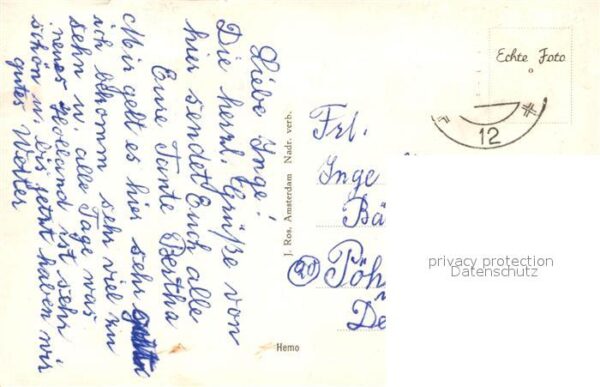 Liebe Inge!
Die herzl. Grüße von
hier sendet Euch alle
Eure Tante Bertha
Mir geht es hier sehr gut
ich bekomm sehr viel zu
sehn u. alle Tage was
neues Holland ist sehr
schön u. bis jetzt haben wir
gutes Wetter
J. Ros, Amsterdam Nadr. verb.
Echte Foto
12
Frl.
Inge
Bä
Pöh
De
Hemo
privacy protection
Datenschutz